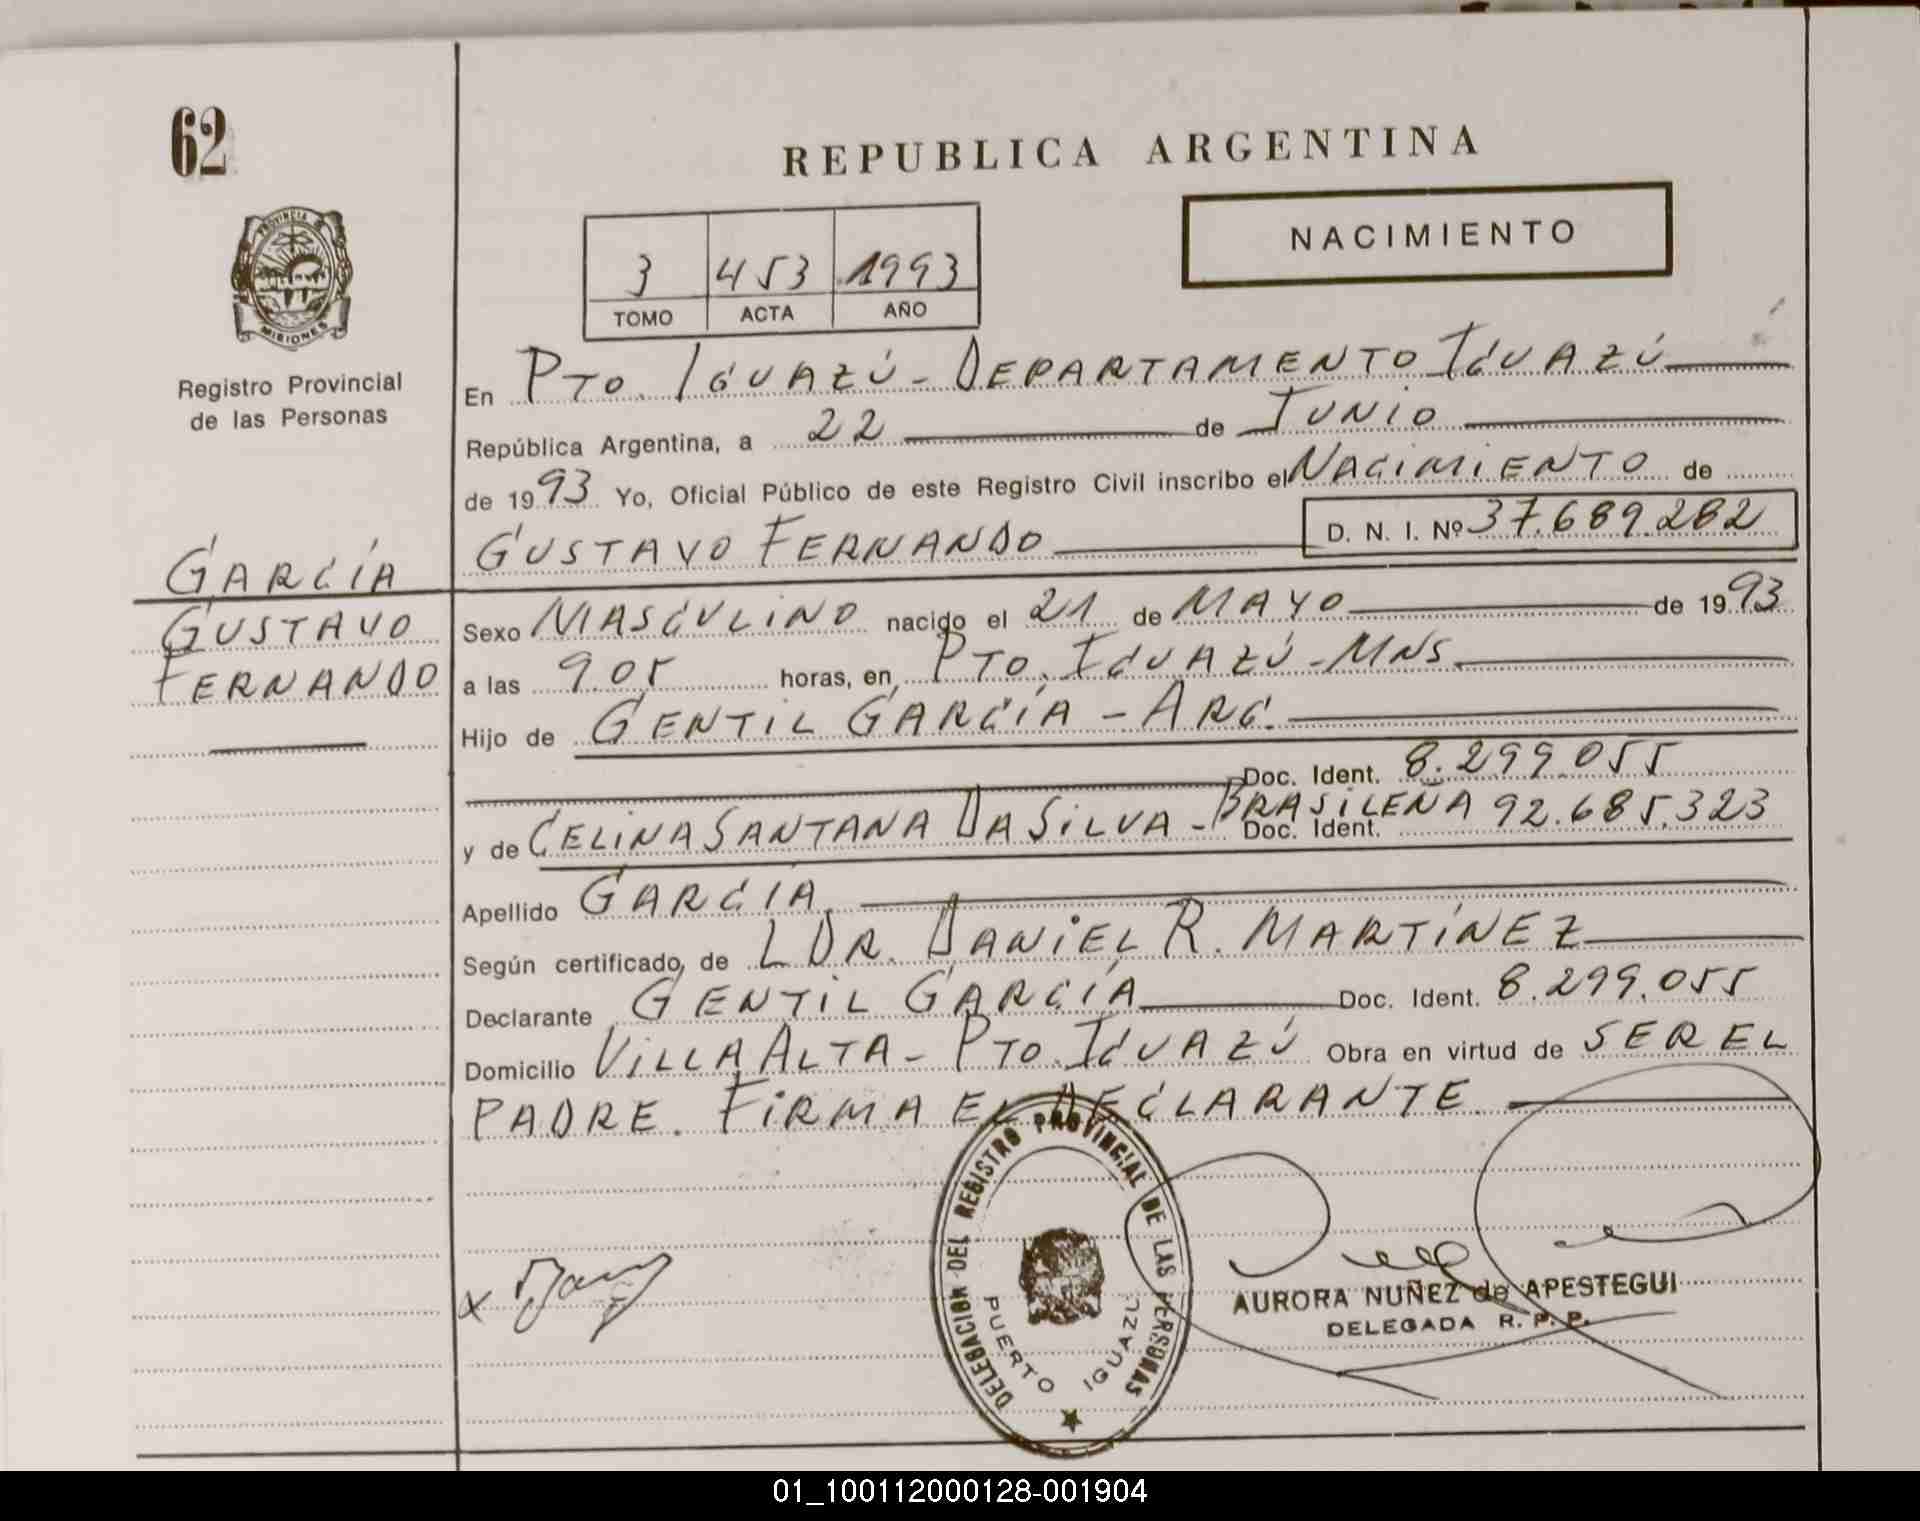 62
REPUBLICA ARGENTINA
NACIMIENTO
3 453 1993
TOMO ACTA AÑO
PROVINCIA DE
MISIONES
Registro Provincial
de las Personas
En PTO. IGUAZÚ - DEPARTAMENTO IGUAZÚ
República Argentina, a 22 de JUNIO
de 1993 Yo, Oficial Público de este Registro Civil inscribo el NACIMIENTO de
GUSTAVO FERNANDO D. N. I. Nº 37.689.282
GARCÍA
GUSTAVO
FERNANDO
Sexo MASCULINO nacido el 21 de MAYO de 1993
a las 9.05 horas, en PTO. IGUAZÚ - MNS
Hijo de GENTIL GARCÍA - ARG.
Doc. Ident. 8.299.055
y de CELINA SANTANA DA SILVA - BRASILEÑA Doc. Ident. 92.685.323
Apellido GARCÍA
Según certificado de L DR. DANIEL R. MARTÍNEZ
Declarante GENTIL GARCÍA Doc. Ident. 8.299.055
Domicilio VILLA ALTA - PTO. IGUAZÚ Obra en virtud de SER EL
PADRE. FIRMA EL DECLARANTE
DELEGACION DEL REGISTRO PROVINCIAL DE LAS PERSONAS
PUERTO IGUAZU
x
AURORA NUÑEZ de APESTEGUI
DELEGADA R. P. P.
01_100112000128-001904